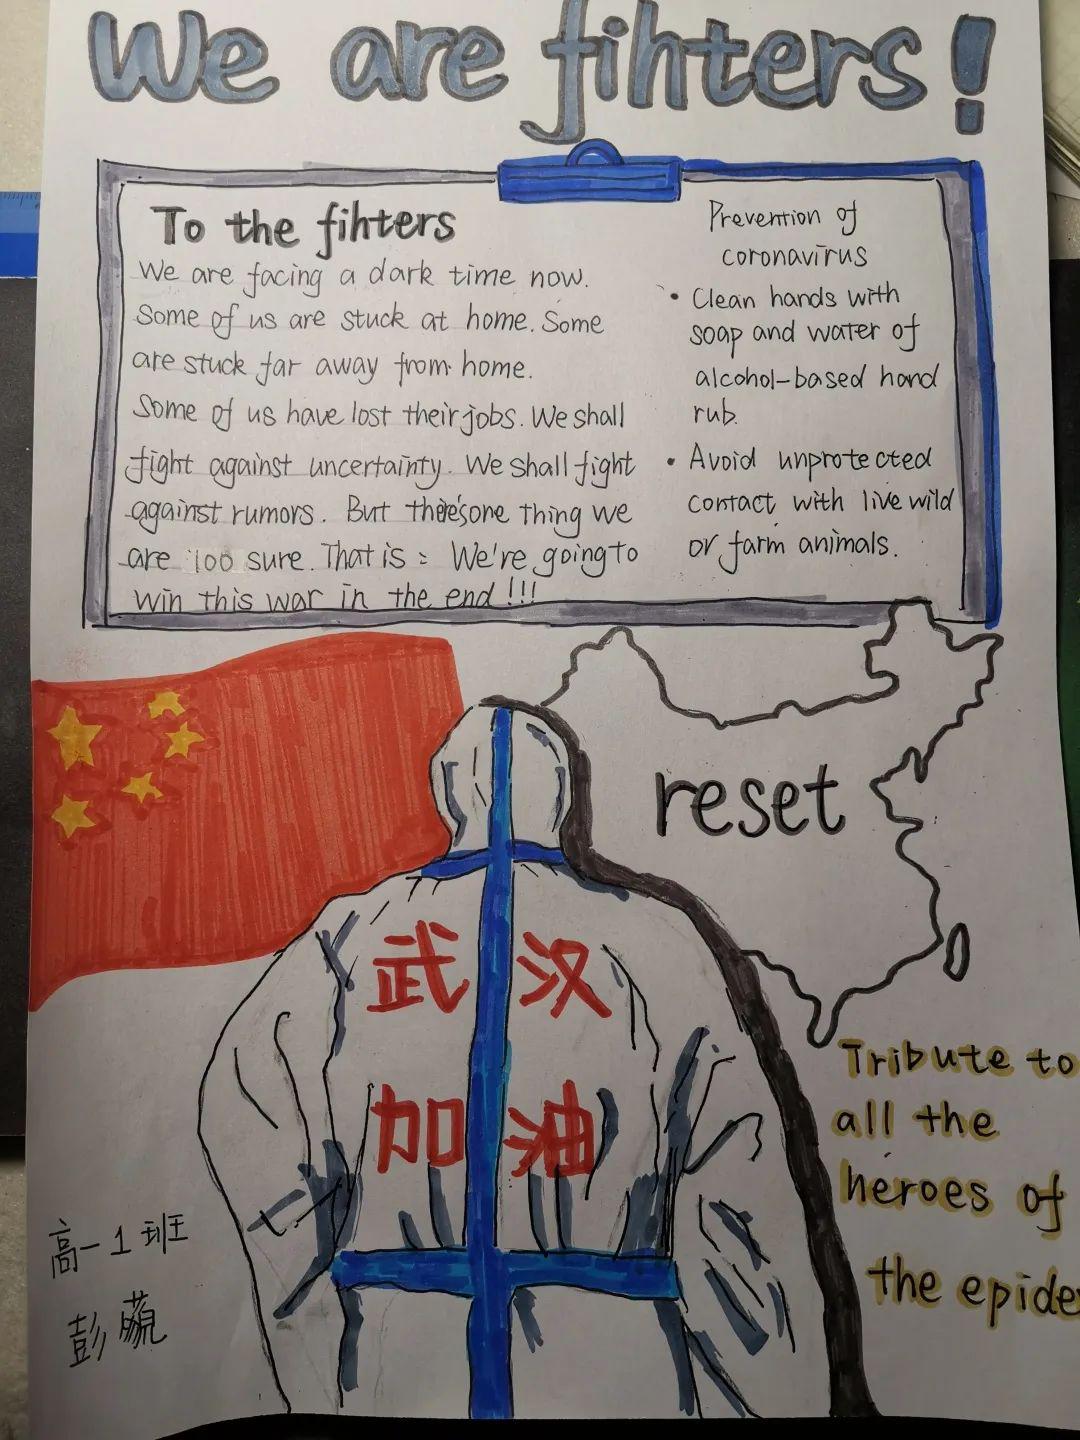 We are fihters!
To the fihters
We are facing a dark time now.
Some of us are stuck at home. Some
are stuck far away from home.
Some of us have lost their jobs. We shall
fight against uncertainty. We shall fight
against rumors. But there's one thing we
are 100 sure. That is: We're going to
win this war in the end!!!
Prevention of
coronavirus
• Clean hands with
soap and water of
alcohol-based hand
rub.
• Avoid unprotected
contact with live wild
or farm animals.
reset
武汉
加油
Tribute to
all the
heroes of
the epide
高一1班
彭